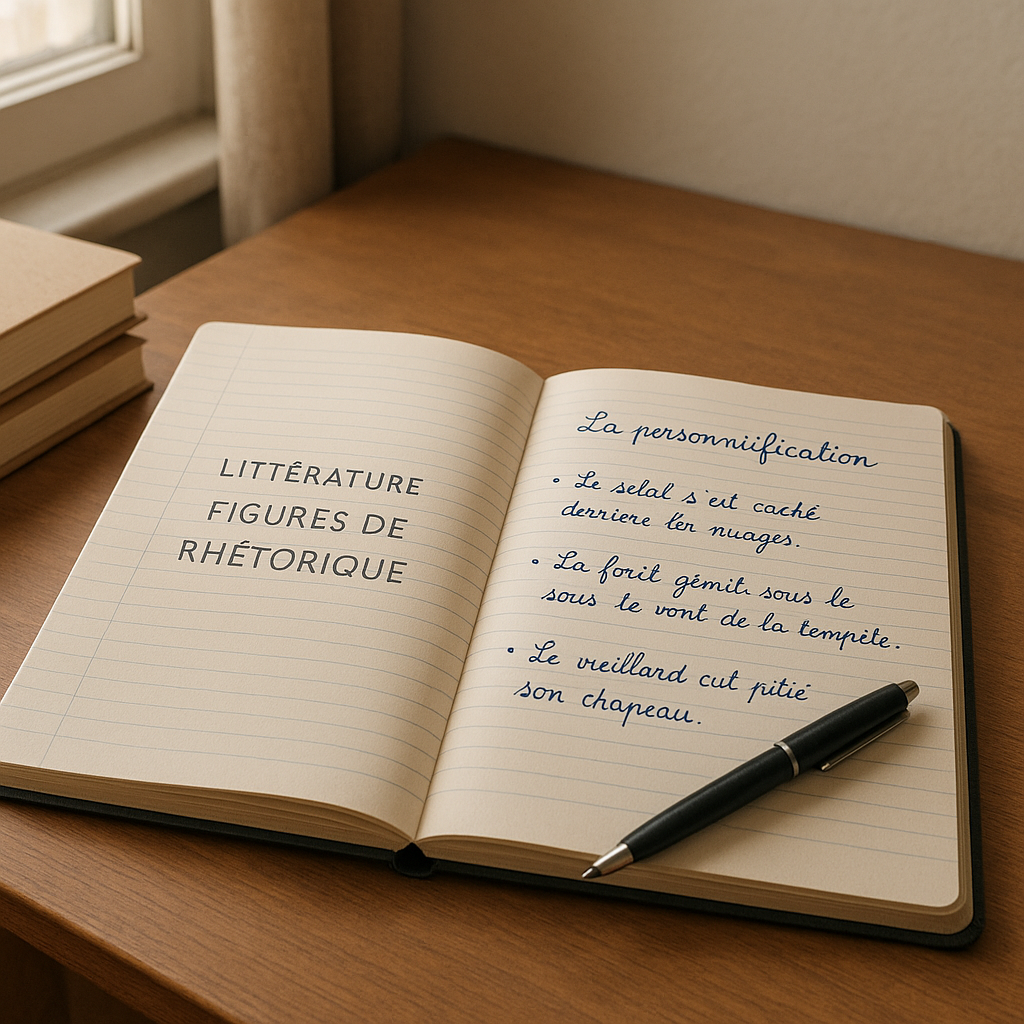 LITTÉRATURE
FIGURES DE
RHÉTORIQUE
La personniification
• Le selal s'est caché
derriere les nuages.
• La forit gémit sous le
sous le vont de la tempète.
• Le vieillard cut pitié
son chapeau.